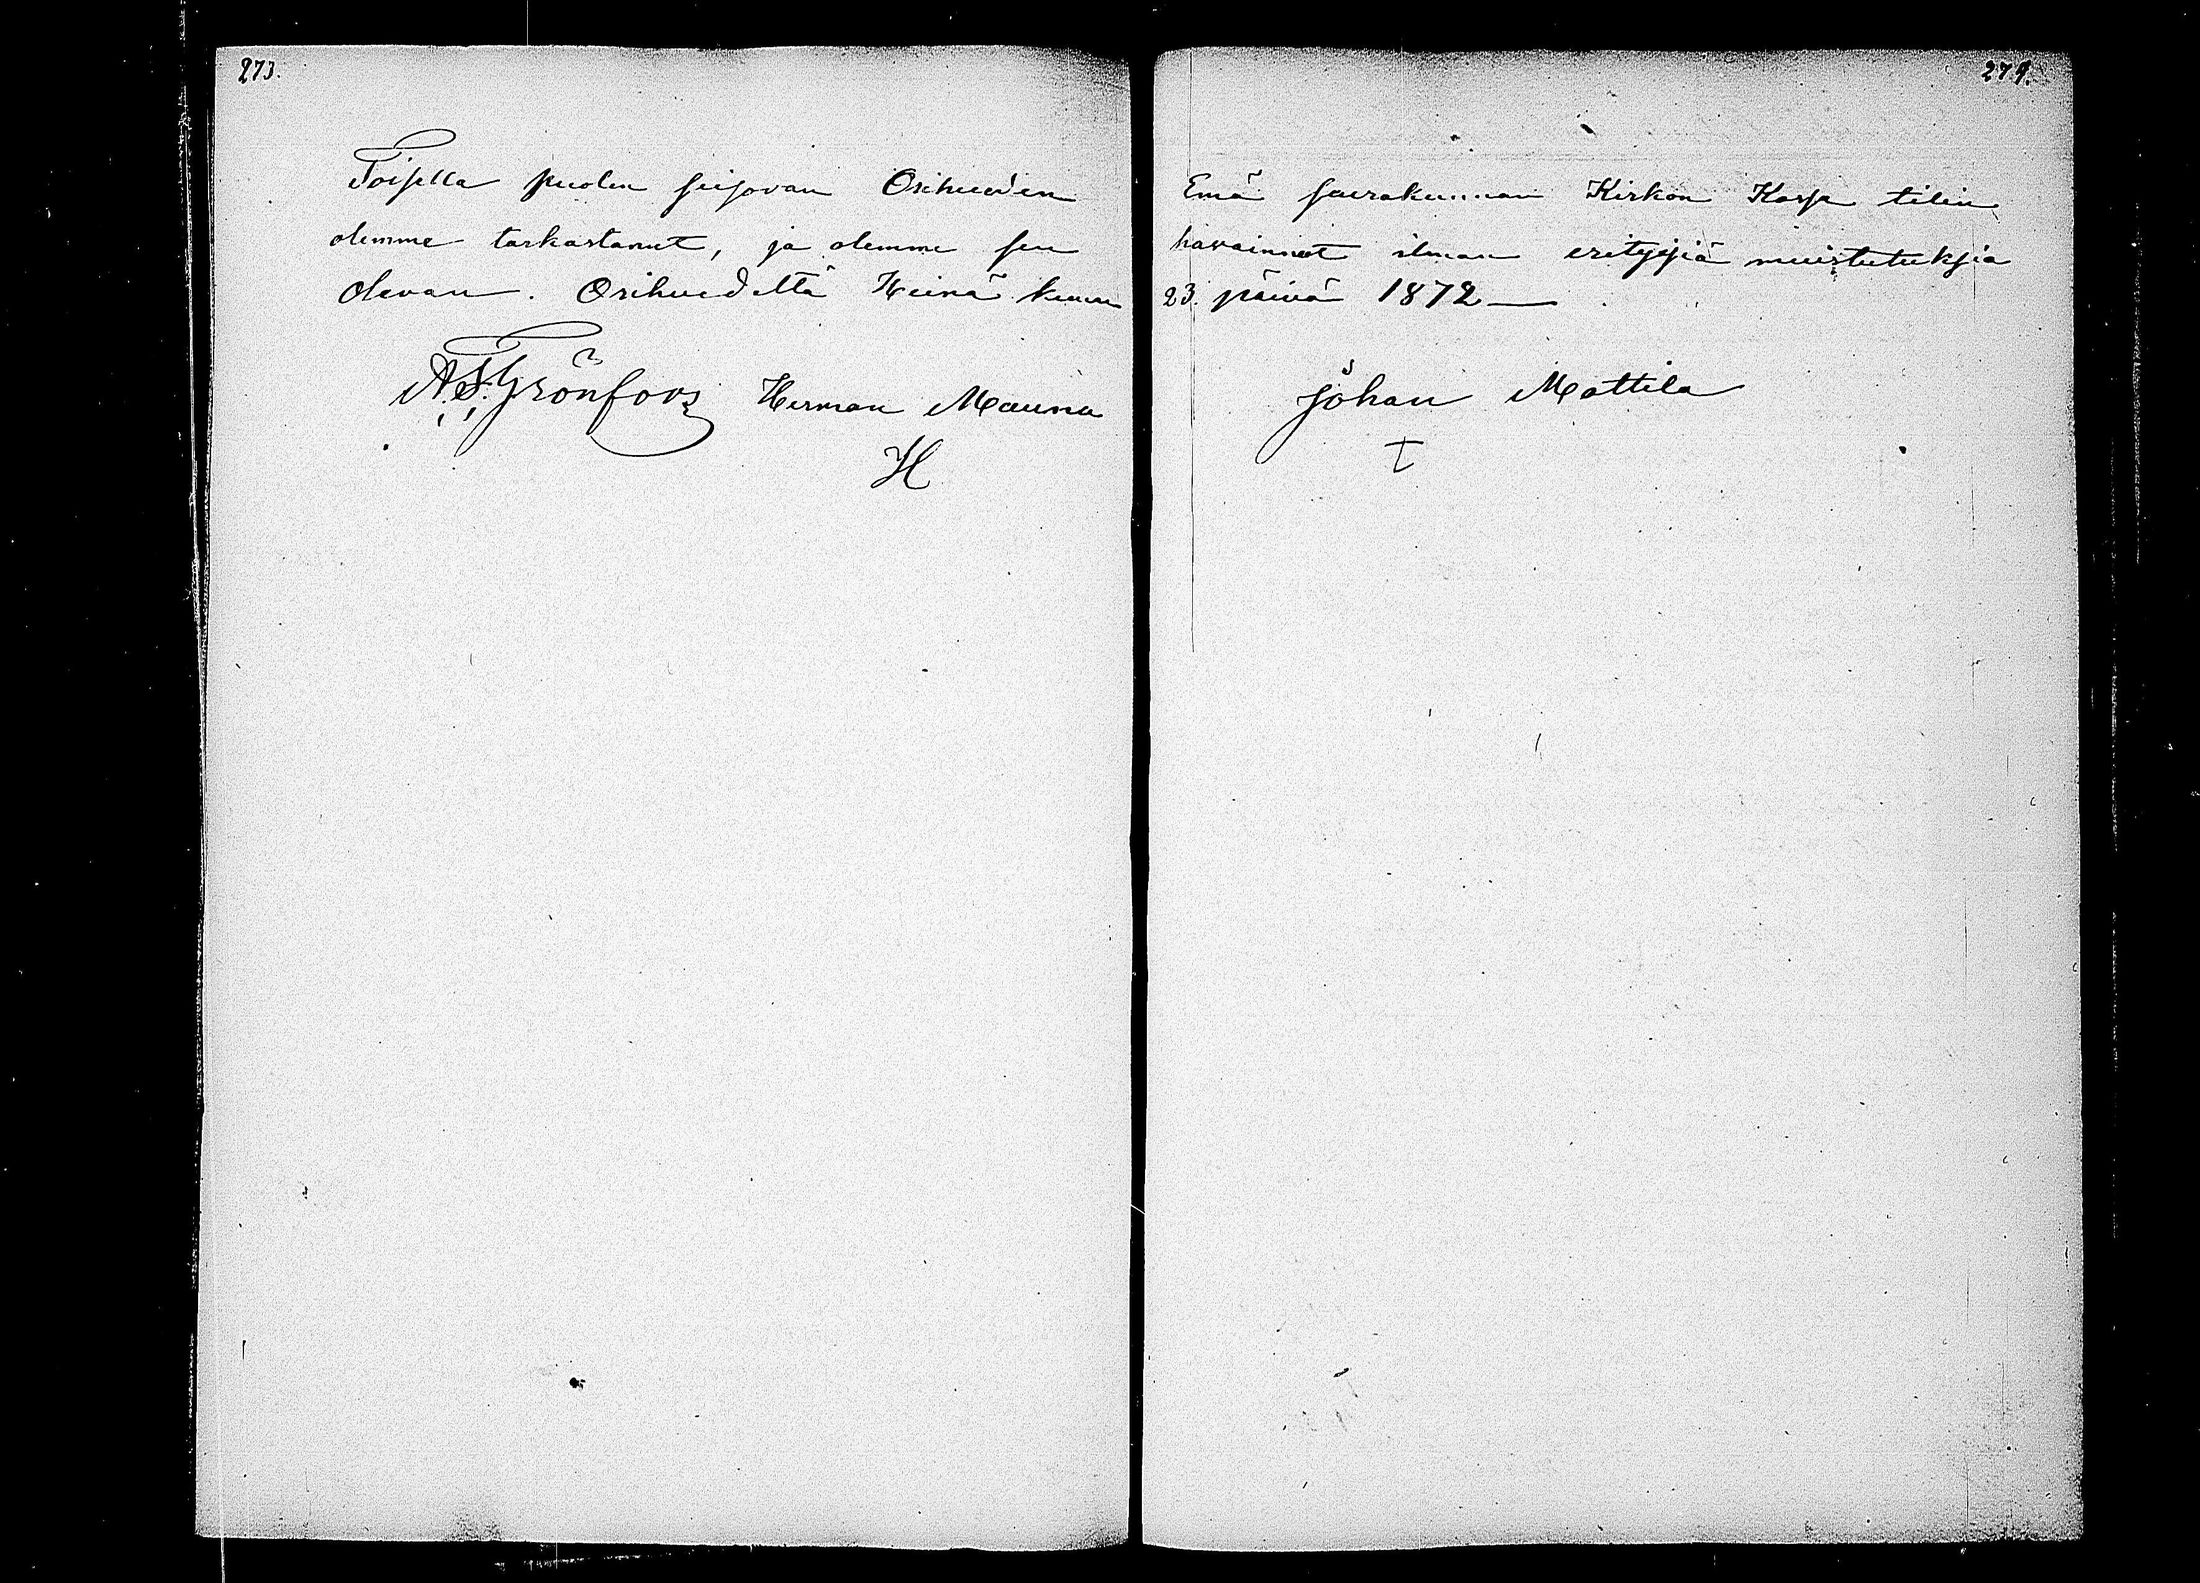 273.
Toisella puolen seisovan Orihueden
olemme tarkastanut, ja olemme sen
olevan. Orihuedeltä Heinä kuun
A. F. Grönfors Herman Mauno
H
274.
Emä seurakunnan Kirkon Kassa tilin
havainnut ilman erityisiä muistutuksia
23. päivä 1872 —
Johan Mattila